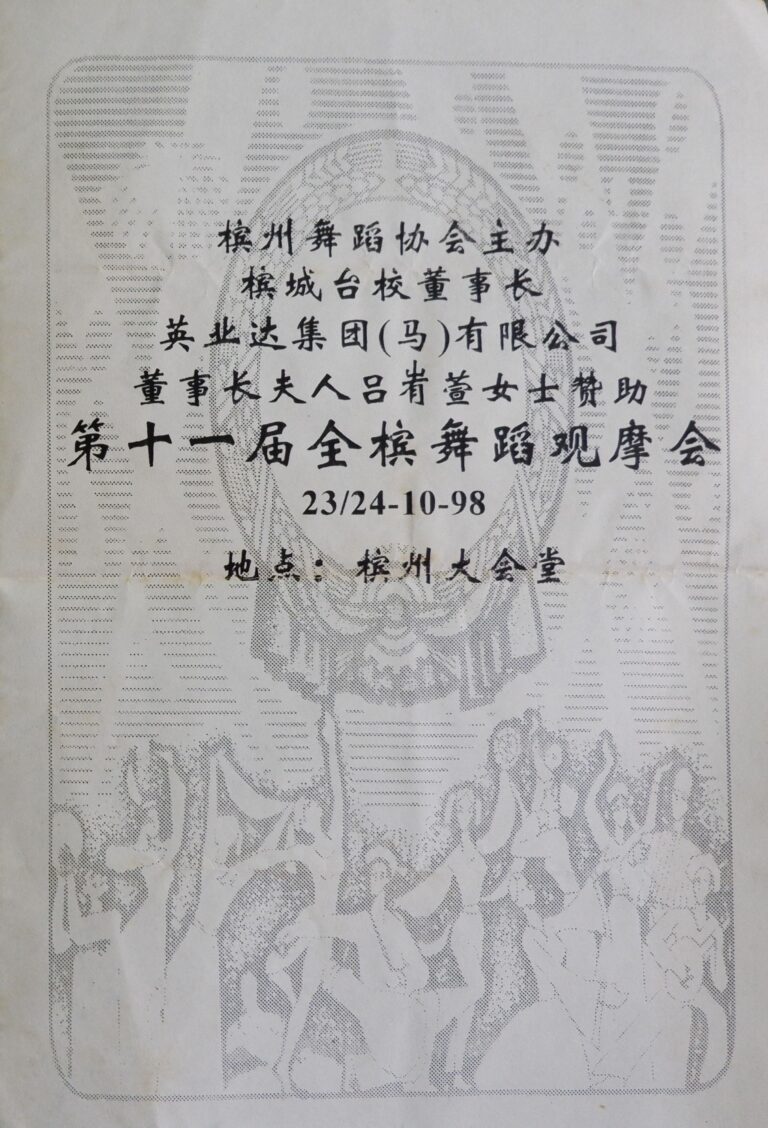 槟州舞蹈协会主办
槟城台校董事长
英业达集团(马)有限公司
董事长夫人吕岽萱女士赞助
第十一届全槟舞蹈观摩会
23/24-10-98
地点：槟州大会堂